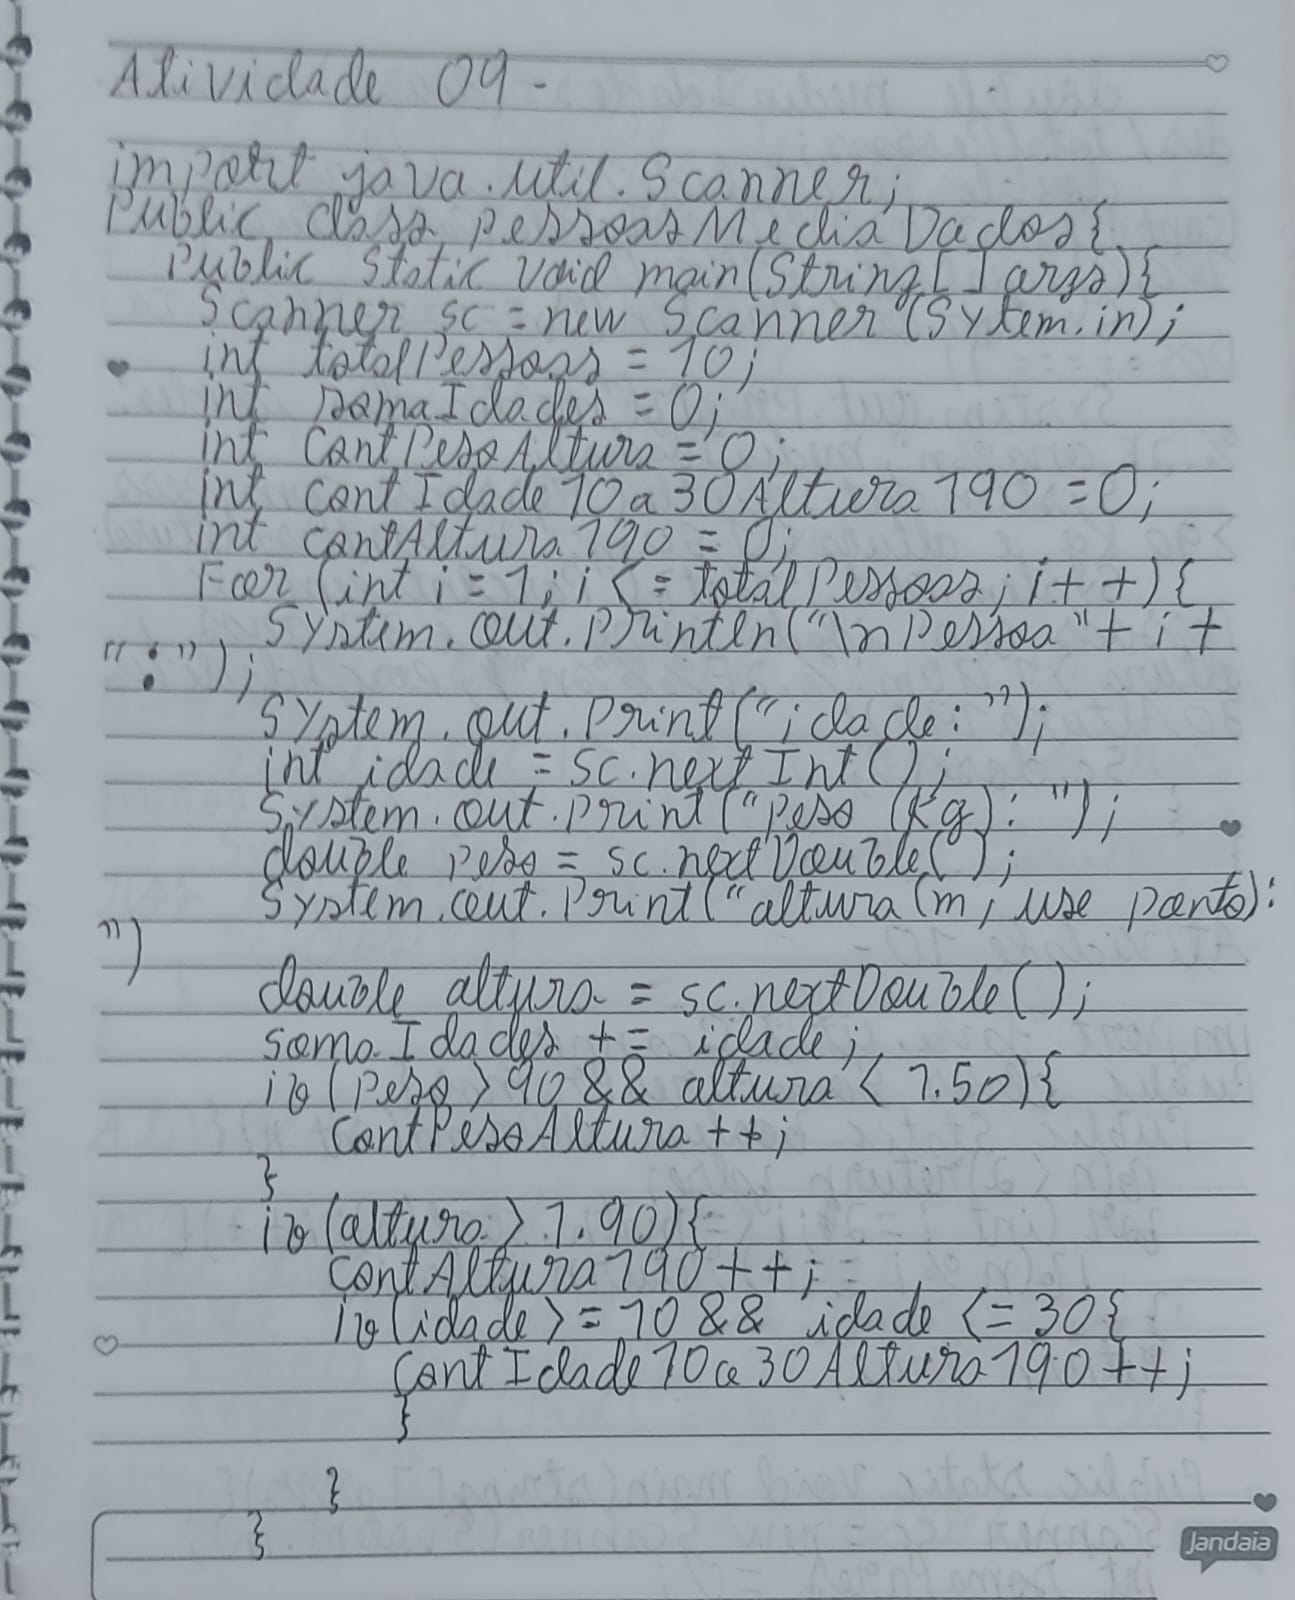 Atividade 09 -
import java.util.Scanner;
Public class pessoasMediaDados{
Public static void main(String[] args){
Scanner sc = new Scanner (Sytem.in);
int totalPessoas = 10;
int somaIdades = 0;
int contPesoAltura = 0;
int contIdade10a30Altura190 = 0;
int contAltura190 = 0;
For (int i = 1; i <= totalPessoas; i++){
System.out.println("\nPessoa" + i +
":");
System.out.print("idade: ");
int idade = sc.nextInt();
System.out.print("peso (kg): ");
double peso = sc.nextDouble();
System.out.print("altura(m, use ponto):
")
double altura = sc.nextDouble();
somaIdades += idade;
if (peso > 90 && altura < 1.50){
contPesoAltura ++;
}
if (altura > 1.90){
contAltura190++;
if (idade >= 10 && idade <= 30{
contIdade10a30Altura190++;
}
}
}
Jandaia